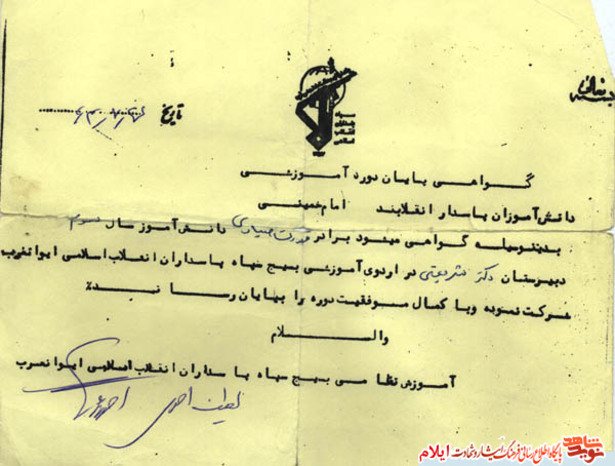 بسمه تعالی
سپاه پاسداران انقلاب اسلامی
تاریخ
گواهی پایان دوره آموزشی
دانش‌آموزان پاسدار انقلابند امام خمینی
بدینوسیله گواهی میشود برادر دانش‌آموز سال سوم
دبیرستان دکتر شریعتی در اردوی آموزشی بسیج سپاه پاسداران انقلاب اسلامی ایوانغرب
شرکت نموده و با کمال موفقیت دوره را بپایان رسانید٪
والسلام
آموزش نظامی بسیج سپاه پاسداران انقلاب اسلامی ایوانغرب
نوید شاهد پایگاه اطلاع رسانی فرهنگ ایثار و شهادت ایلام